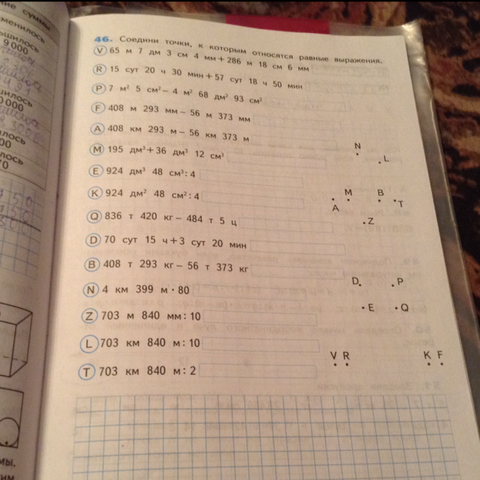 ние суммы
менилось
ьшилось
9 000
шилось
000
илось
70
46. Соедини точки, к которым относятся равные выражения.
V 65 м 7 дм 3 см 4 мм + 286 м 18 см 6 мм
R 15 сут 20 ч 30 мин + 57 сут 18 ч 50 мин
P 7 м² 5 см² – 4 м² 68 дм² 93 см²
F 408 м 293 мм – 56 м 373 мм
A 408 км 293 м – 56 км 373 м
N
L
M 195 дм³ + 36 дм³ 12 см³
E 924 дм³ 48 см³ : 4
K 924 дм² 48 см² : 4
M B
A T
Q 836 т 420 кг – 484 т 5 ц
Z
D 70 сут 15 ч + 3 сут 20 мин
B 408 т 293 кг – 56 т 373 кг
D P
N 4 км 399 м · 80
E Q
Z 703 м 840 мм : 10
L 703 км 840 м : 10
V R K F
T 703 км 840 м : 2
мы.